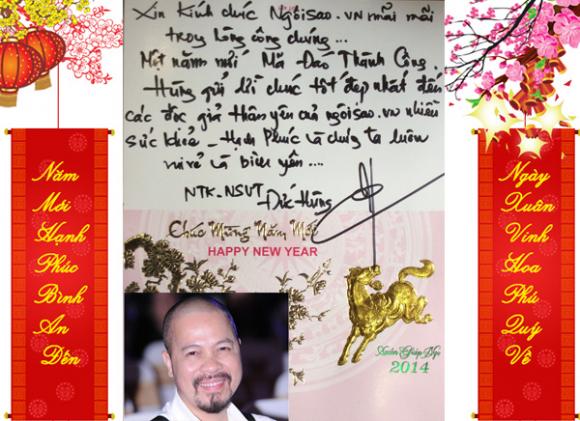 Năm
Mới
Hạnh
Phúc
Bình
An
Đến
Xin Kính chúc Ngôisao.vn mãi mãi
trong lòng công chúng...
Một năm mới Mã Đáo Thành Công.
Hùng gửi lời chúc tốt đẹp nhất đến
các độc giả thân yêu của ngôisao.vn nhiều
sức khỏe - Hạnh Phúc và chúng ta luôn
vui vẻ và bình yên...
NTK-NSƯT Đức Hùng
Chúc Mừng Năm Mới
HAPPY NEW YEAR
Xuân Giáp Ngọ
2014
Ngày
Xuân
Vinh
Hoa
Phú
Quý
Về